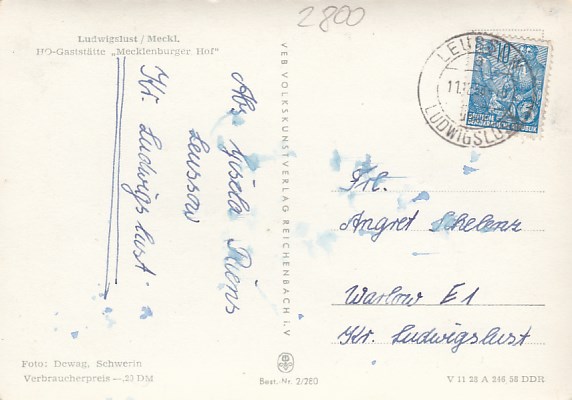 2800
Ludwigslust / Meckl.
HO-Gaststätte „Mecklenburger Hof"
Abs. Gisela
Leussow
Kr. Ludwigslust
VEB VOLKSKUNSTVERLAG REICHENBACH i. V
LEUSSOW
LUDWIGSLUST
10
Frl.
Angret Schelenz
Warlow E1
Kr. Ludwigslust
Foto: Dewag, Schwerin
Verbraucherpreis —.23 DM
Best.-Nr. 2/280
V 11 28 A 246 58 DDR